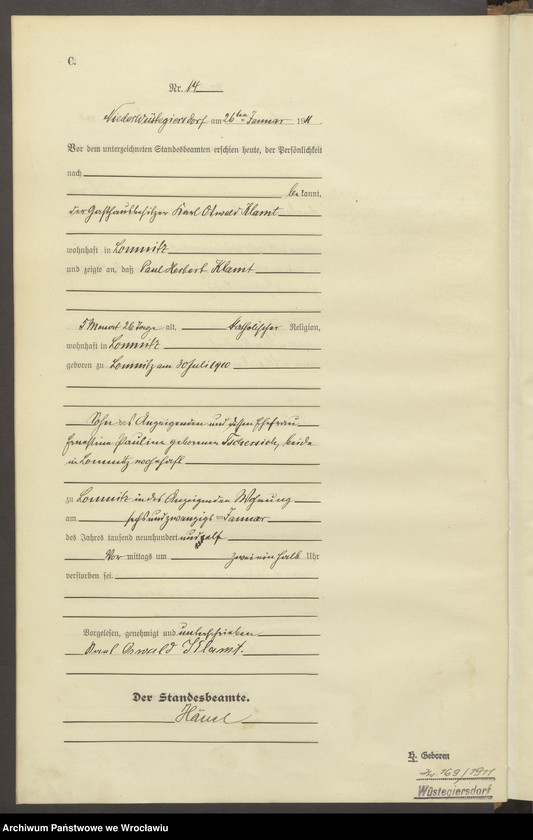 C.
Nr. 14
Niederwüstegiersdorf am 26ten Januar 1911
Vor dem unterzeichneten Standesbeamten erschien heute, der Persönlichkeit
nach
be kannt,
der Gasthausbesitzer Karl Oswald Klamt
wohnhaft in Lomnitz
und zeigte an, daß Paul Herbert Klamt
5 Monat 26 Tage alt, katholischer Religion,
wohnhaft in Lomnitz
geboren zu Lomnitz am 30 Juli 1910
Sohn des Anzeigenden und dessen Ehefrau
Ernestine Pauline geborenen beide
in Lomnitz wohnhaft
zu Lomnitz in des Anzeigenden Wohnung
am sechsundzwanzigsten Januar
des Jahres tausend neunhundert und elf
Vor mittags um zweieinhalb Uhr
verstorben sei.
Vorgelesen, genehmigt und unterschrieben
Karl Oswald Klamt.
Der Standesbeamte.
H. Geboren
Nr. 169/1911
Wüstegiersdorf
Archiwum Państwowe we Wrocławiu